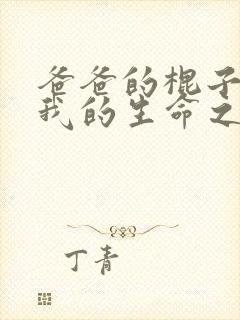 爸爸的棍子
我的生命之
丁青